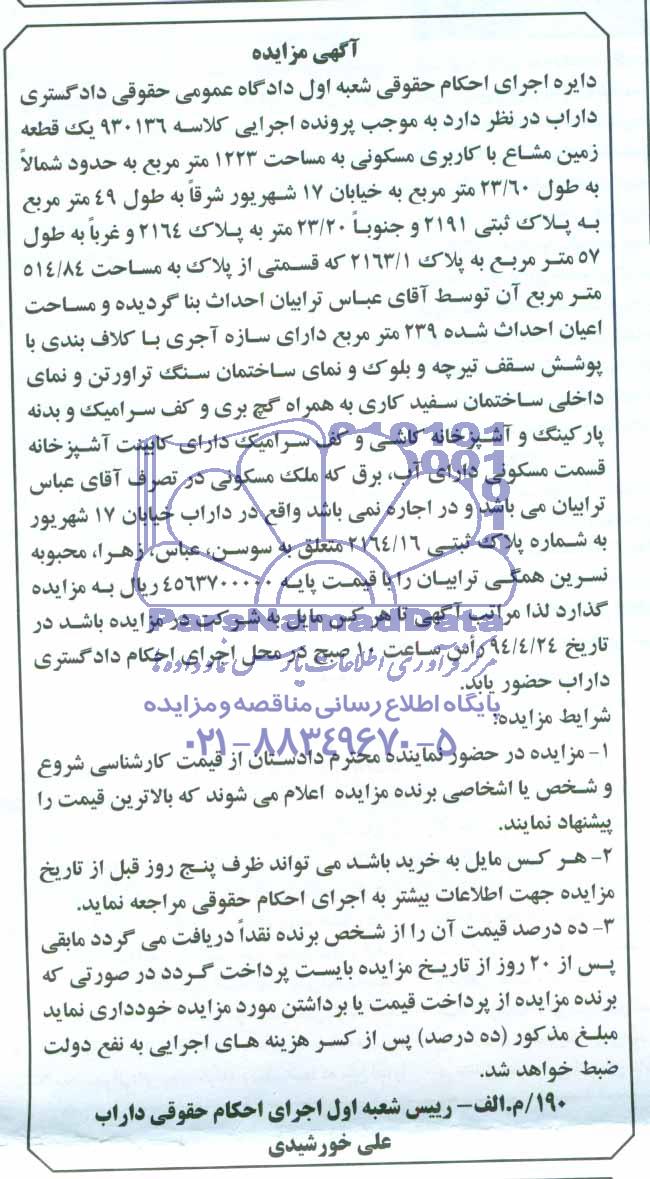 آگهی مزایده
دایره اجرای احکام حقوقی شعبه اول دادگاه عمومی حقوقی دادگستری
داراب در نظر دارد به موجب پرونده اجرایی کلاسه ۹۳۰۱۳۶ یک قطعه
زمین مشاع با کاربری مسکونی به مساحت ۱۲۲۳ متر مربع به حدود شمالاً
به طول ۲۳/۶۰ متر مربع به خیابان ۱۷ شهریور شرقاً به طول ۴۹ متر مربع
به پلاک ثبتی ۲۱۹۱ و جنوباً ۲۳/۲۰ متر به پلاک ۲۱۶۴ و غرباً به طول
۵۷ متر مربع به پلاک ۲۱۶۳/۱ که قسمتی از پلاک به مساحت ۵۱۴/۸۴
متر مربع آن توسط آقای عباس ترابیان احداث بنا گردیده و مساحت
اعیان احداث شده ۲۳۹ متر مربع دارای سازه آجری با کلاف بندی با
پوشش سقف تیرچه و بلوک و نمای ساختمان سنگ تراورتن و نمای
داخلی ساختمان سفید کاری به همراه گچ بری و کف سرامیک و بدنه
پارکینگ و آشپزخانه کاشی و کف سرامیک دارای کابینت آشپزخانه
قسمت مسکونی دارای آب، برق که ملک مسکونی در تصرف آقای عباس
ترابیان می باشد و در اجاره نمی باشد واقع در داراب خیابان ۱۷ شهریور
به شماره پلاک ثبتی ۲۱۶۴/۱۶ متعلق به سوسن، عباس، زهرا، محبوبه
نسرین همگی ترابیان را با قیمت پایه ۴۵۶۳۷۰۰۰۰۰ ریال به مزایده
گذارد لذا مراتب آگهی تا هر کس مایل به شرکت در مزایده باشد در
ParsNamadData
تاریخ ۹۴/۴/۲۴ رأس ساعت ۱۰ صبح در محل اجرای احکام دادگستری
داراب حضور یابد.
پایگاه اطلاع رسانی مناقصه و مزایده
شرایط مزایده:
۰۲۱-۸۸۳۴۹۶۷۰-۵
۱- مزایده در حضور نماینده محترم دادستان از قیمت کارشناسی شروع
و شخص یا اشخاصی برنده مزایده اعلام می شوند که بالاترین قیمت را
پیشنهاد نمایند.
۲- هر کس مایل به خرید باشد می تواند ظرف پنج روز قبل از تاریخ
مزایده جهت اطلاعات بیشتر به اجرای احکام حقوقی مراجعه نماید.
۳- ده درصد قیمت آن را از شخص برنده نقداً دریافت می گردد مابقی
پس از ۲۰ روز از تاریخ مزایده بایست پرداخت گردد در صورتی که
برنده مزایده از پرداخت قیمت یا برداشتن مورد مزایده خودداری نماید
مبلغ مذکور (ده درصد) پس از کسر هزینه های اجرایی به نفع دولت
ضبط خواهد شد.
۱۹۰/م.الف- رییس شعبه اول اجرای احکام حقوقی داراب
علی خورشیدی